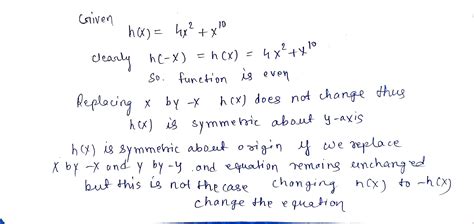 Given
h(x) = 4x² + x¹⁰
clearly h(-x) = h(x) = 4x² + x¹⁰
So. function is even
Replacing x by -x h(x) does not change thus
h(x) is symmetric about y-axis
h(x) is symmetric about origin if we replace
x by -x and y by -y and equation remains unchanged
but this is not the case changing h(x) to -h(x)
change the equation